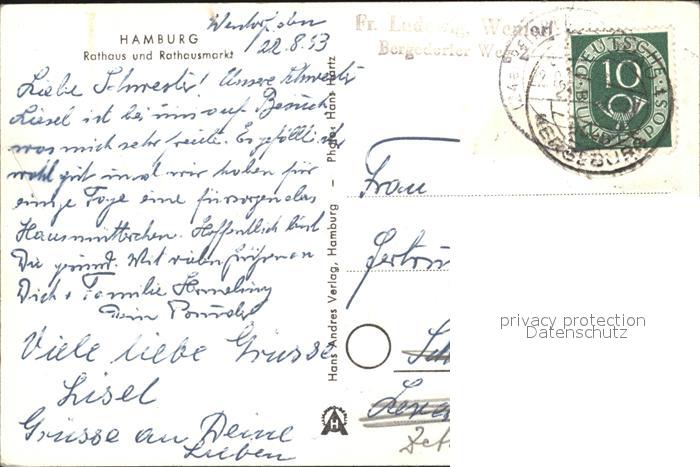 HAMBURG
Rathaus und Rathausmarkt
Wentorf, den
22.8.53
Liebe Schwester! Unsere Schwester
Liesel ist bei uns auf Besuch
was mich sehr freute. Es gefällt ihr
wohl gut und wir haben für
einige Tage eine fürsorgendes
Hausmütterchen. Hoffentlich bist
Du gesund. Mit vielen Grüßen an
Dich + Familie
Dein Bruder
Viele liebe Grüsse
Lisel
Grüsse an Deine
Lieben
Hans Andres Verlag, Hamburg — Photo: Hans Hartz
Fr. Ludowig, Wentorf
Bergedorfer Weg 2
DEUTSCHE BUNDESPOST
10
Frau
privacy protection
Datenschutz